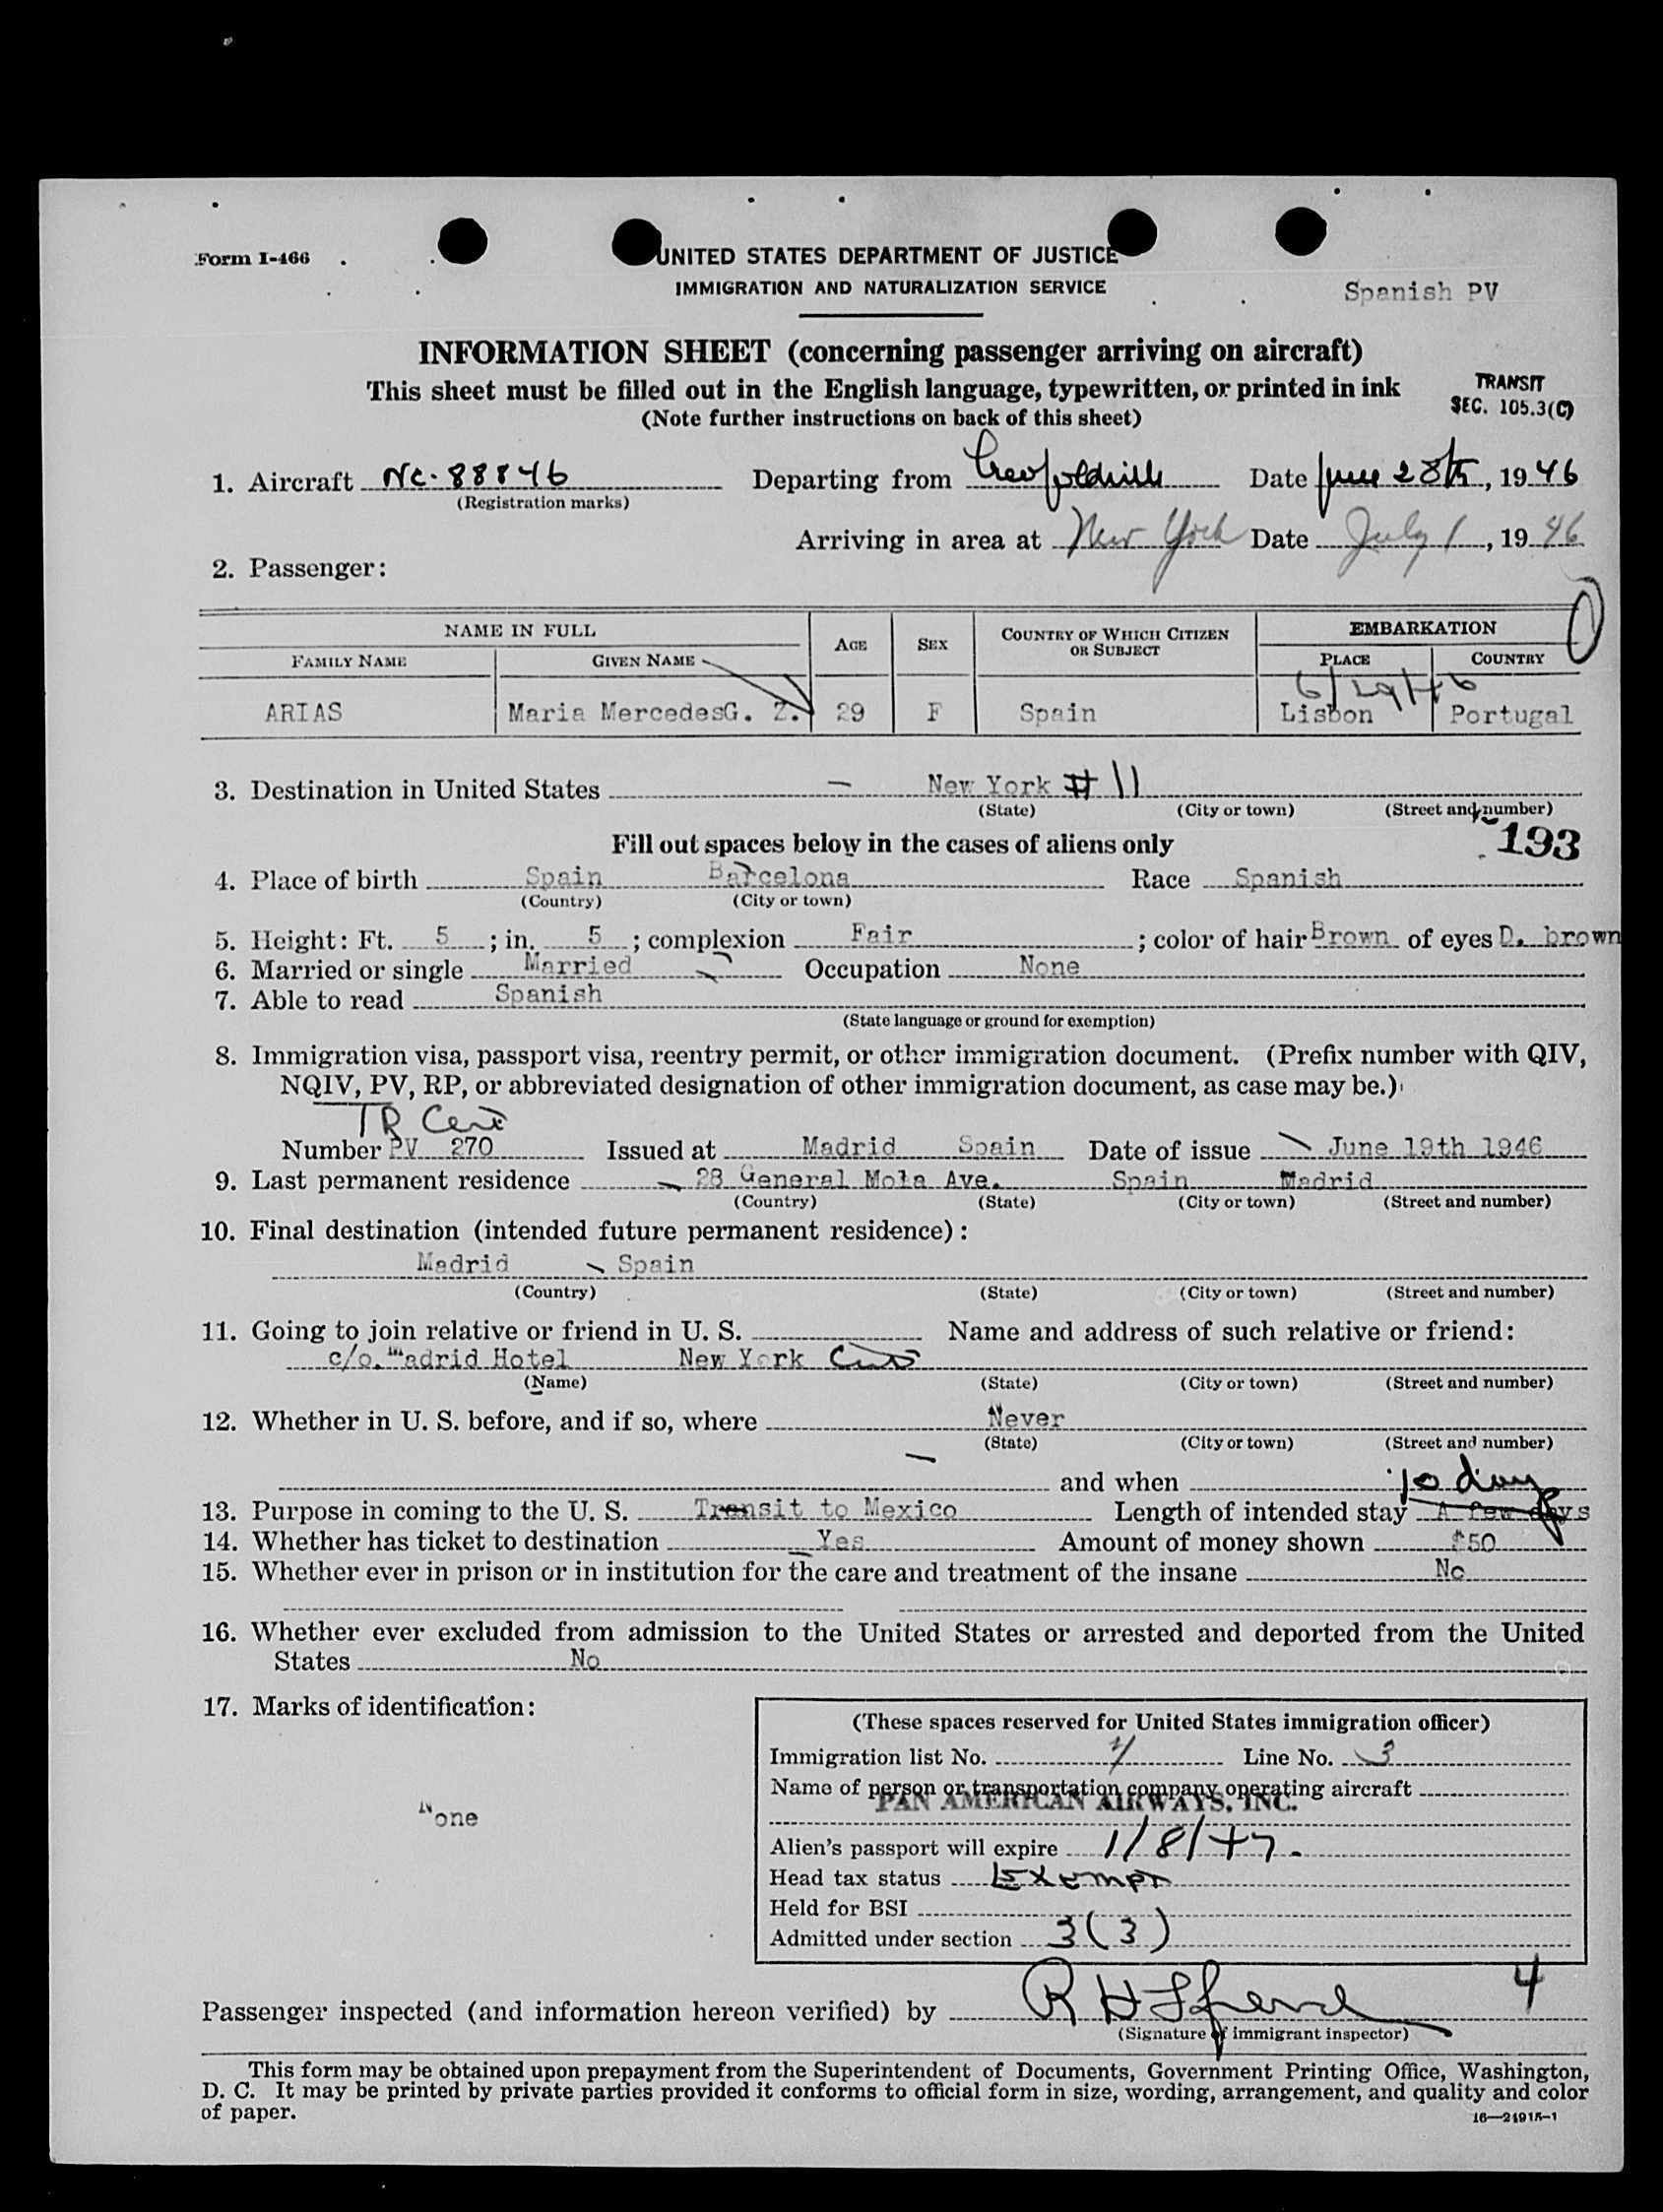 Form I-466
UNITED STATES DEPARTMENT OF JUSTICE
IMMIGRATION AND NATURALIZATION SERVICE
Spanish PV
INFORMATION SHEET (concerning passenger arriving on aircraft)
This sheet must be filled out in the English language, typewritten, or printed in ink
(Note further instructions on back of this sheet)
TRANSIT
SEC. 105.3(C)
1. Aircraft NC-88846 Departing from Leopoldville Date June 28th, 1946
(Registration marks)
Arriving in area at New York Date July 1, 1946
2. Passenger:
NAME IN FULL AGE SEX COUNTRY OF WHICH CITIZEN OR SUBJECT EMBARKATION
FAMILY NAME GIVEN NAME PLACE COUNTRY
6/29/46
ARIAS Maria MercedesG. Z. 29 F Spain Lisbon Portugal
3. Destination in United States New York # 11
(State) (City or town) (Street and number)
Fill out spaces below in the cases of aliens only
193
4. Place of birth Spain Barcelona Race Spanish
(Country) (City or town)
5. Height: Ft. 5; in. 5; complexion Fair; color of hair Brown of eyes D. brown
6. Married or single Married Occupation None
7. Able to read Spanish
(State language or ground for exemption)
8. Immigration visa, passport visa, reentry permit, or other immigration document. (Prefix number with QIV,
NQIV, PV, RP, or abbreviated designation of other immigration document, as case may be.)
TR Cert
Number PV 270 Issued at Madrid Spain Date of issue June 19th 1946
9. Last permanent residence 28 General Mola Ave. Spain Madrid
(Country) (State) (City or town) (Street and number)
10. Final destination (intended future permanent residence):
Madrid Spain
(Country) (State) (City or town) (Street and number)
11. Going to join relative or friend in U. S. Name and address of such relative or friend:
c/o. Madrid Hotel New York
(Name) (State) (City or town) (Street and number)
12. Whether in U. S. before, and if so, where Never
(State) (City or town) (Street and number)
and when
10 days
13. Purpose in coming to the U. S. Transit to Mexico Length of intended stay A few days
14. Whether has ticket to destination Yes Amount of money shown $50
15. Whether ever in prison or in institution for the care and treatment of the insane No
16. Whether ever excluded from admission to the United States or arrested and deported from the United
States No
17. Marks of identification:
None
(These spaces reserved for United States immigration officer)
Immigration list No. Line No. 3
Name of person or transportation company operating aircraft
PAN AMERICAN AIRWAYS, INC.
Alien's passport will expire 1/8/47.
Head tax status Exempt
Held for BSI
Admitted under section 3(3)
4
Passenger inspected (and information hereon verified) by
(Signature of immigrant inspector)
This form may be obtained upon prepayment from the Superintendent of Documents, Government Printing Office, Washington,
D. C. It may be printed by private parties provided it conforms to official form in size, wording, arrangement, and quality and color
of paper.
16—24915-1